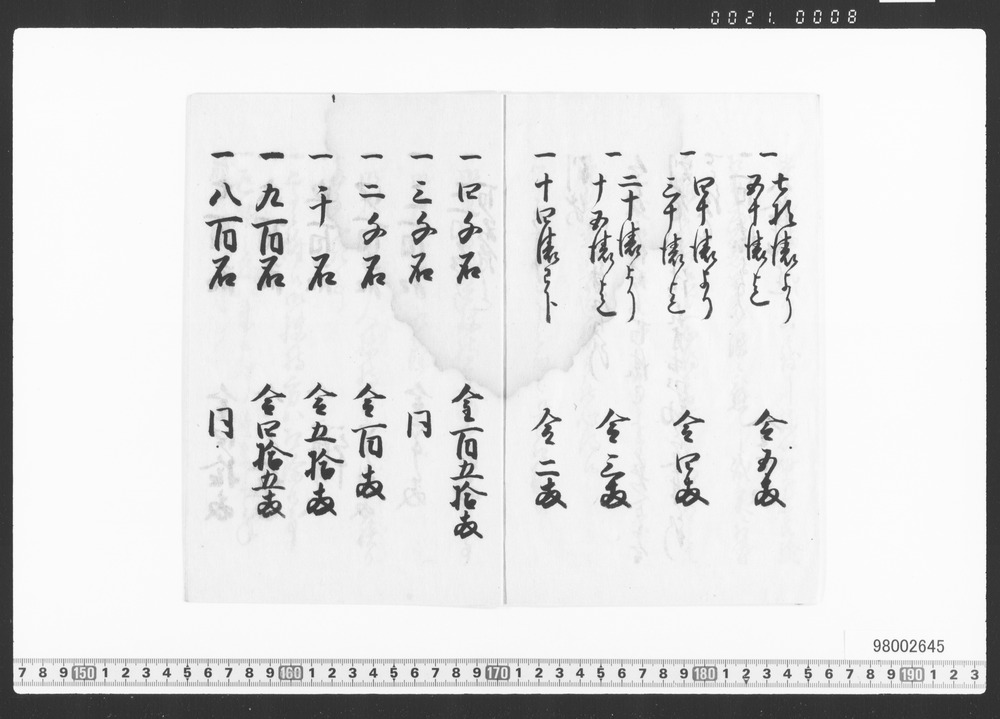 0021.0008
一 七拾俵より
五十俵迄 金五両
一 四十俵より
三十俵迄 金四両
一 二十俵より
十五俵迄 金三両
一 十四俵以下 金二両
一 四千石 金百五拾両
一 三千石 同
一 二千石 金百両
一 千石 金五拾両
一 九百石 金四拾五両
一 八百石 同
98002645
7 8 9 150 1 2 3 4 5 6 7 8 9 160 1 2 3 4 5 6 7 8 9 170 1 2 3 4 5 6 7 8 9 180 1 2 3 4 5 6 7 8 9 190 1 2 3